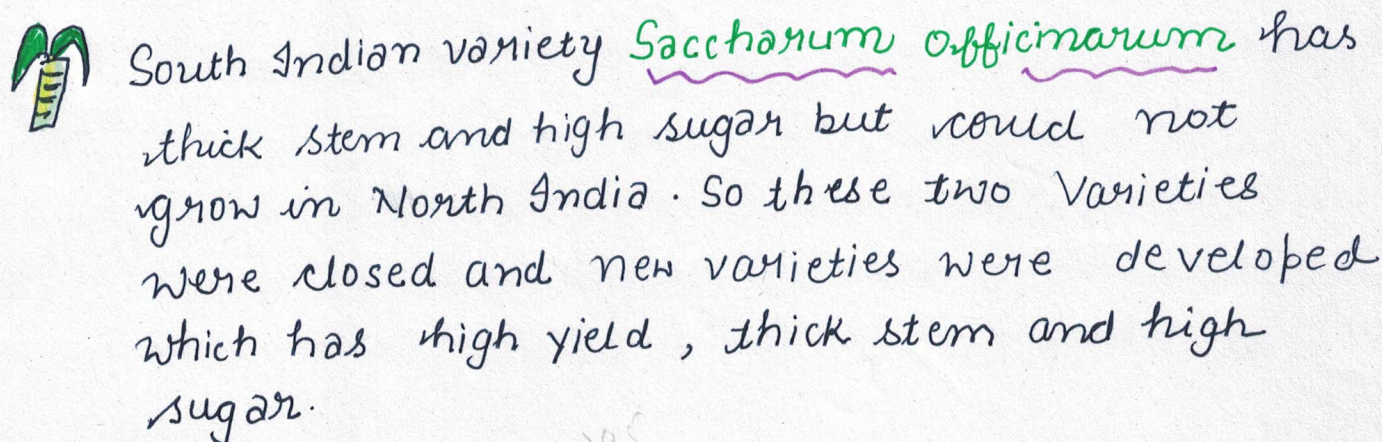 South Indian variety Saccharum officinarum has
thick stem and high sugar but could not
grow in North India. So these two Varieties
were closed and new varieties were developed
which has high yield, thick stem and high
sugar.